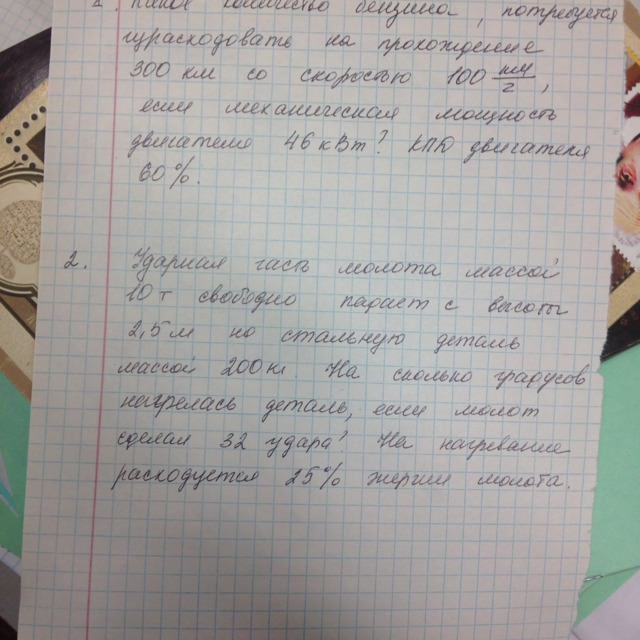 какое количество бензина, потребуется
израсходовать на прохождение
300 км со скоростью 100 км/г,
если механическая мощность
двигателя 46 кВт? КПД двигателя
60%.
2. Ударная часть молота массой
10 т свободно падает с высоты
2,5 м но стальную деталь
массой 200 кг. На сколько градусов
нагрелась деталь, если молот
сделал 32 удара? На нагревание
расходуется 25% энергии молота.